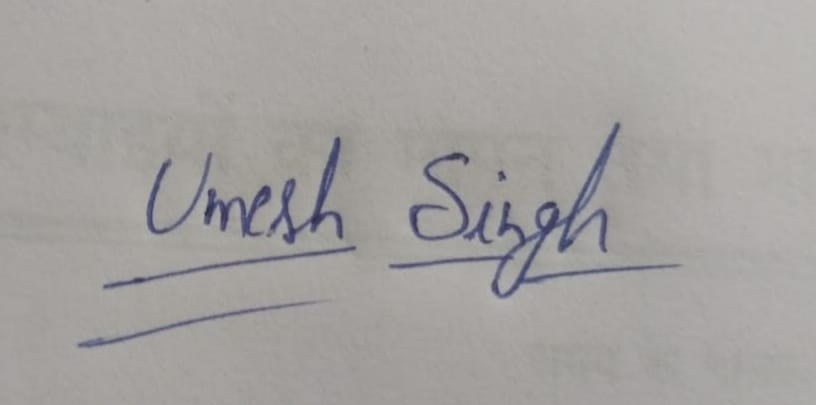 Umesh Singh